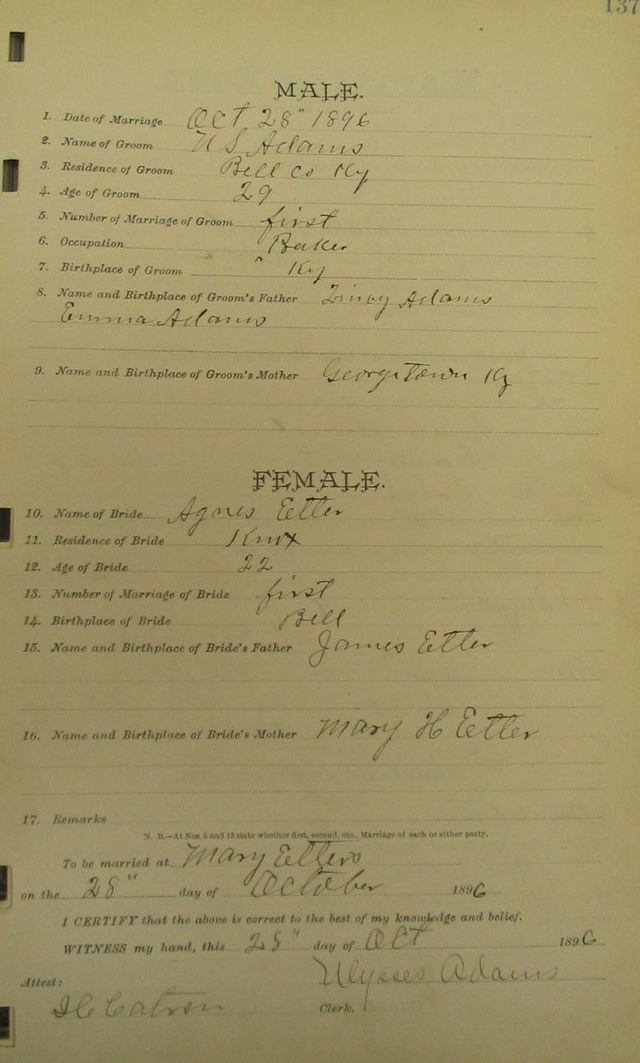 137
MALE.
1. Date of Marriage Oct 28" 1896
2. Name of Groom U S Adams
3. Residence of Groom Bell Co Ky
4. Age of Groom 29
5. Number of Marriage of Groom first
6. Occupation Baker
7. Birthplace of Groom " Ky
8. Name and Birthplace of Groom's Father Adams
Emma Adams
9. Name and Birthplace of Groom's Mother Georgetown Ky
FEMALE.
10. Name of Bride Agnes Etter
11. Residence of Bride Knox
12. Age of Bride 22
13. Number of Marriage of Bride first
14. Birthplace of Bride Bell
15. Name and Birthplace of Bride's Father James Etter
16. Name and Birthplace of Bride's Mother Mary H Etter
17. Remarks
N. B.—At Nos. 5 and 13 state whether first, second, etc., Marriage of each or either party.
To be married at Mary Etters
on the 28" day of October 1896
I CERTIFY that the above is correct to the best of my knowledge and belief.
WITNESS my hand, this 28" day of Oct 1896
Ulysses Adams
Attest:
Catron Clerk.